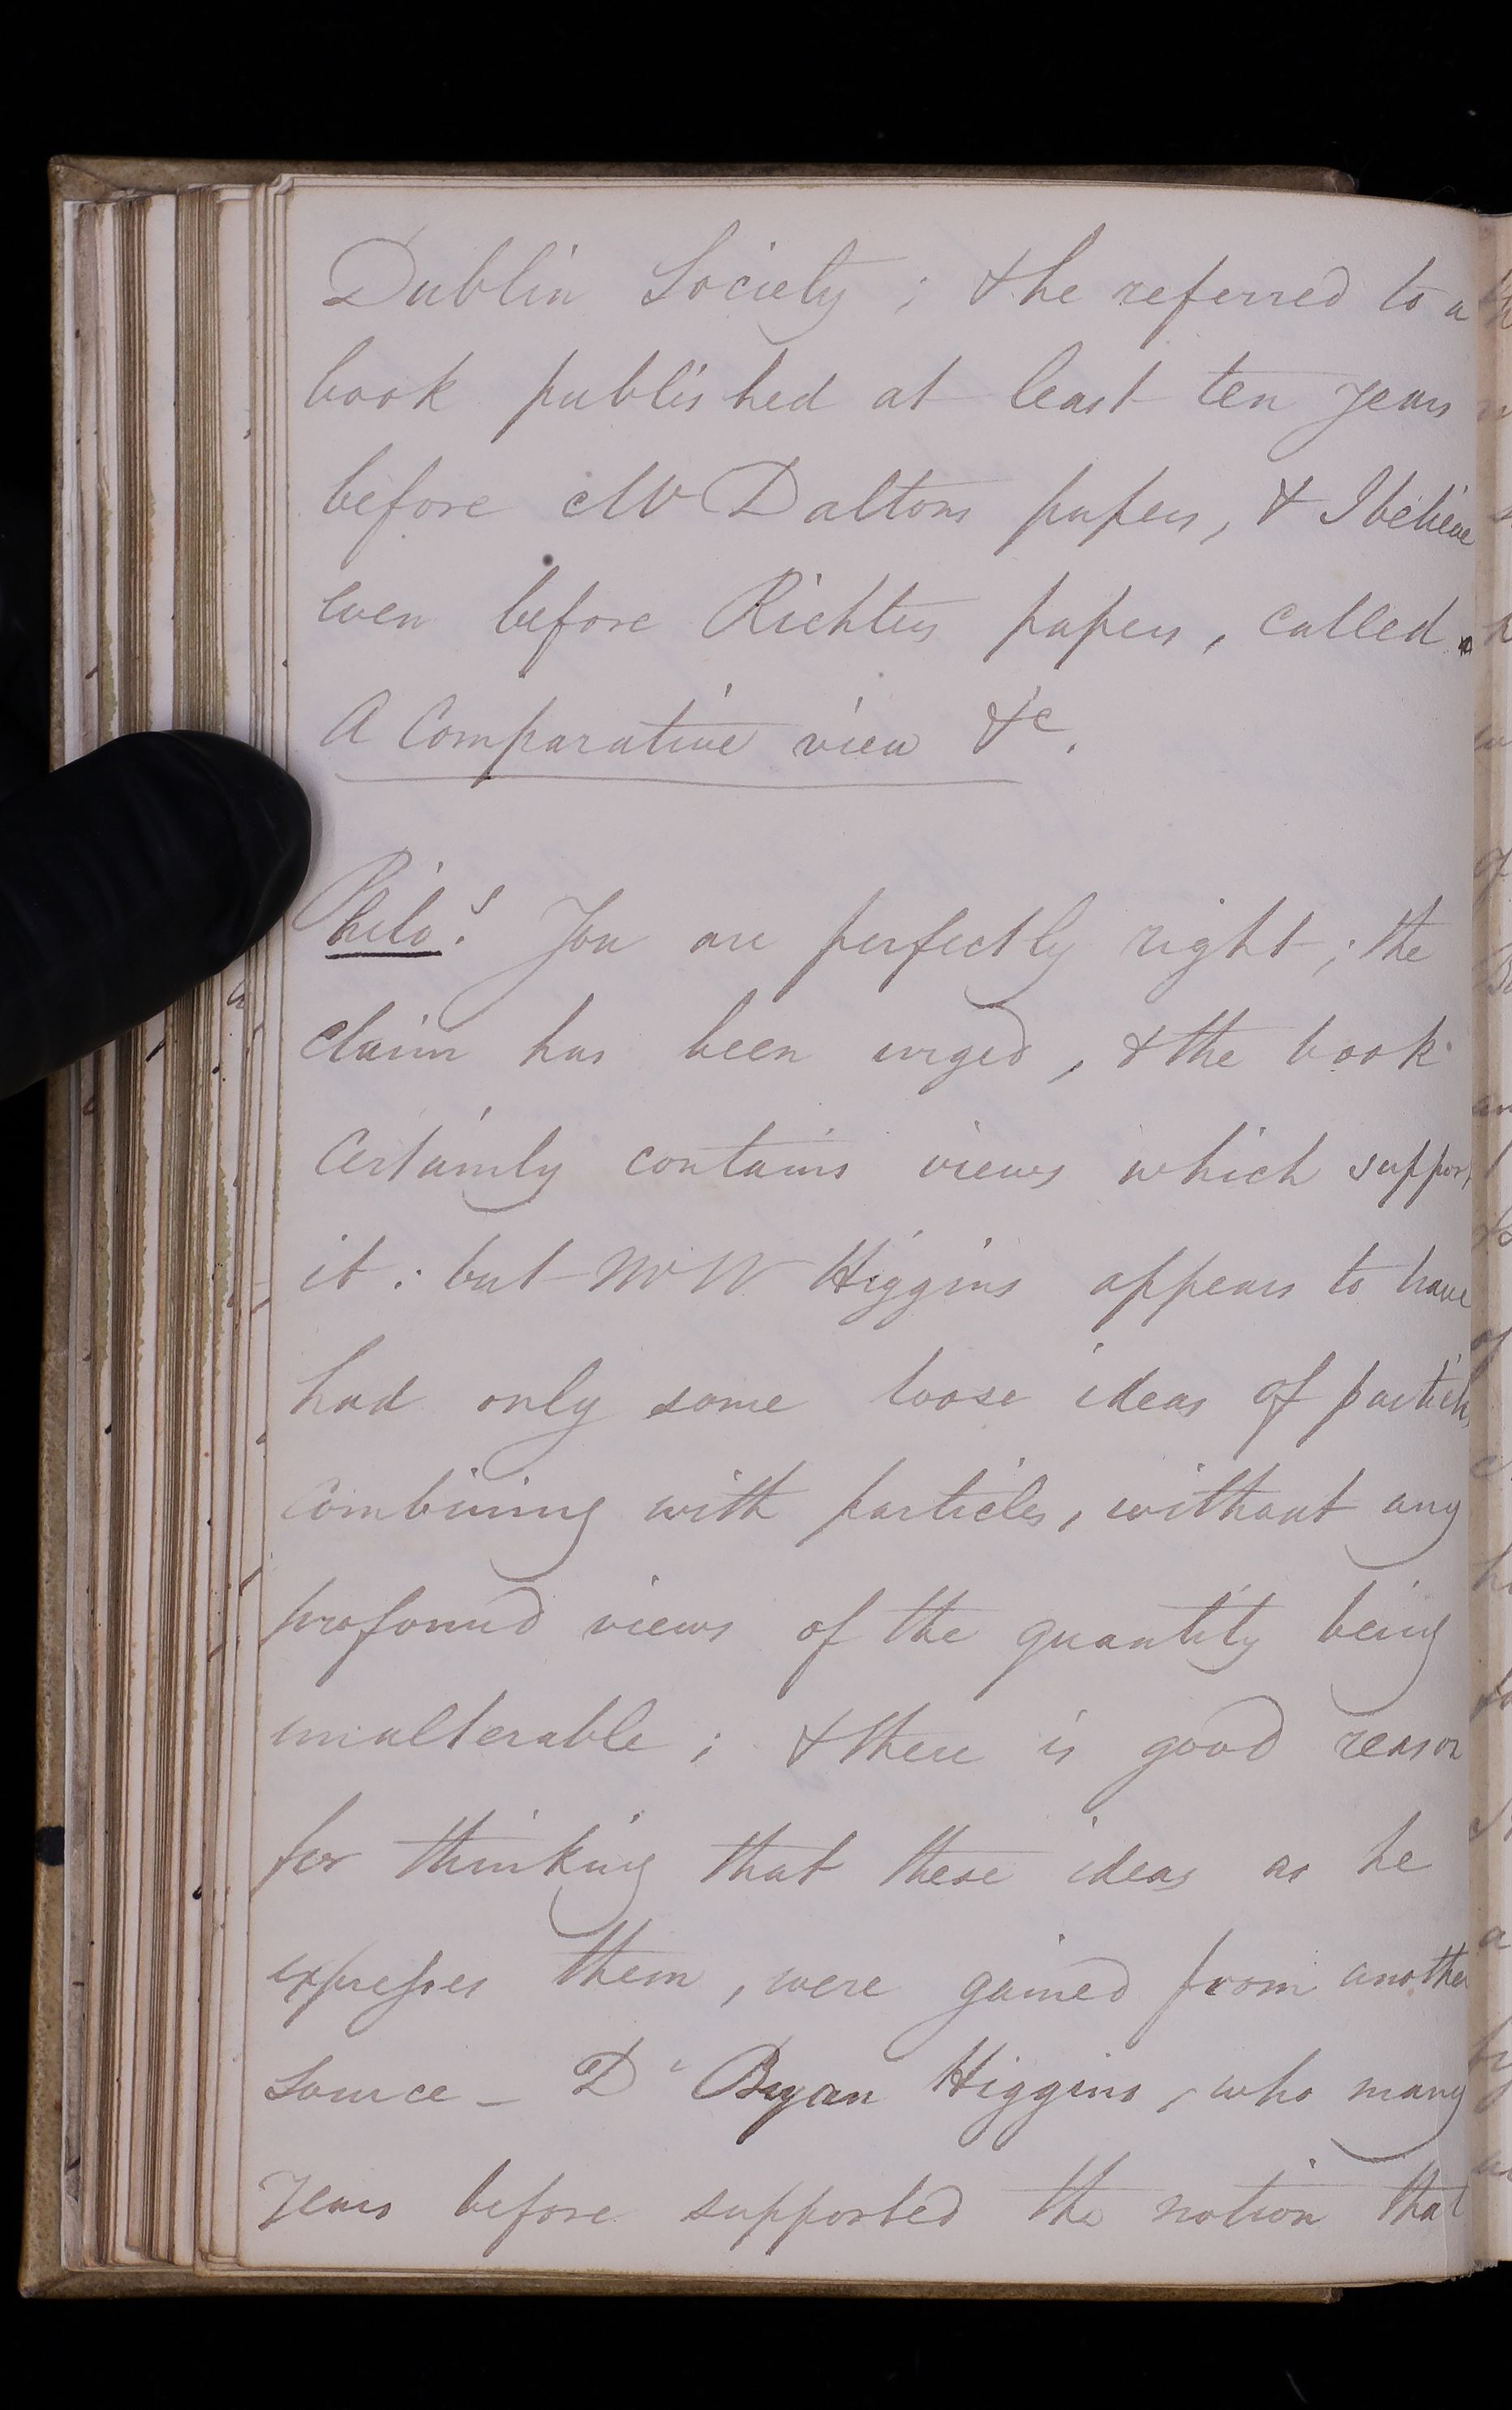 Dublin Society ; & he referred to a
book published at least ten years
before Mr Daltons papers, & I believe
even before Richters papers, called
A Comparative view &c.
Philos. You are perfectly right ; the
claim has been urged, & the book
Certainly contains views which support
it : but Mr W Higgins appears to have
had only some loose ideas of particles
combining with particles, without any
profound views of the quantity being
unalterable ; & there is good reason
for thinking that these ideas as he
expresses them, were gained from another
source – Dr Bryan Higgins, who many
years before supported the notion that